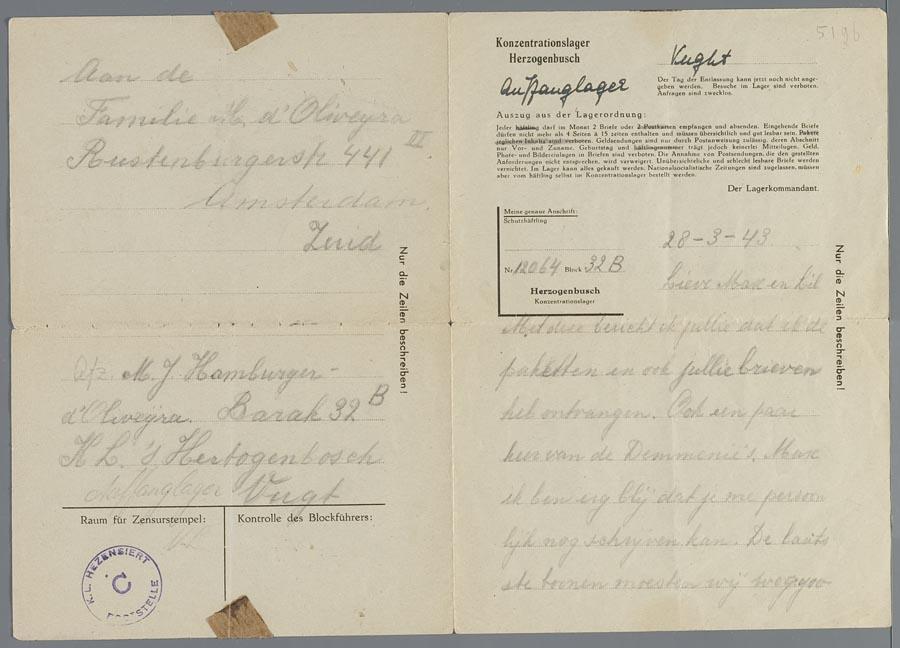 Aan de
Familie M. d'Oliveyra
Rustenburgerstr 441 III.
Amsterdam.
Zuid
Nur die Zeilen beschreiben!
Afz. M. J. Hamburger-
d'Oliveyra. Barak 32 B
K L. 's Hertogenbosch
Auffanglager Vugt
Raum für Zensurstempel:
Kontrolle des Blockführers:
K.L. HEZENSIERT
POSTSTELLE
5196
Konzentrationslager
Herzogenbusch
Vught
Auffanglager
Der Tag der Entlassung kann jetzt noch nicht ange-
geben werden. Besuche im Lager sind verboten.
Anfragen sind zwecklos.
Auszug aus der Lagerordnung:
Jeder häftling darf im Monat 2 Briefe oder 2 Postkarten empfangen und absenden. Eingehende Briefe
dürfen nicht mehr als 4 Seiten à 15 zeilen enthalten und müssen übersichtlich und gut lesbar sein. Pakete
jeglichen Inhalts sind verboten. Geldsendungen sind nur durch Postanweisung zulässig, deren Abschnitt
nur Vor- und Zuname, Geburtstag und häftlingsnummer trägt jedoch keinerlei Mitteilugen. Geld,
Photo- und Bildereinlagen in Briefen sind verboten. Die Annahme von Postsendungen, die den gestellten
Anforderungen nicht entsprechen, wird verweigert. Unübersichtliche und schlecht lesbare Briefe werden
vernichtet. Im Lager kann alles gekauft werden. Nationalsocialistische Zeitungen sind zugelassen, müssen
aber vom häftling selbst im Konzentrationslager bestellt werden.
Der Lagerkommandant.
Meine genaue Anschrift:
Schutzhäftling
Nr. 12064 Block 32 B
Herzogenbusch
Konzentrationslager
28-3-43
Lieve Max en Lil
Met deze bericht ik jullie dat ik de
paketten en ook jullie brieven
heb ontvangen. Ook een paar
van de Max
ik ben erg blij dat je me persoon
lijk nog schrijven kan. De laats
ste boonen moesten wij weggoo
Nur die Zeilen beschreiben!